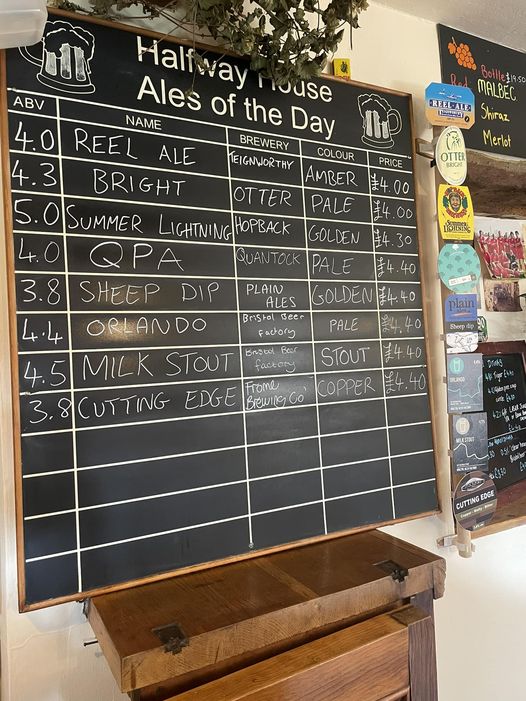 Halfway House
Ales of the Day
ABV NAME BREWERY COLOUR PRICE
4.0 REEL ALE TEIGNWORTHY AMBER £4.00
4.3 BRIGHT OTTER PALE £4.00
5.0 SUMMER LIGHTNING HOPBACK GOLDEN £4.30
4.0 QPA QUANTOCK PALE £4.40
3.8 SHEEP DIP PLAIN ALES GOLDEN £4.40
4.4 ORLANDO Bristol Beer Factory PALE £4.40
4.5 MILK STOUT Bristol Beer factory STOUT £4.40
3.8 CUTTING EDGE Frome Brewing Co' COPPER £4.40
Red Bottle £19.50
MALBEC
Shiraz
Merlot
REEL ALE
OTTER
BRIGHT
Summer
Lightning
plain
Sheep dip
ORLANDO
MILK STOUT
CUTTING EDGE